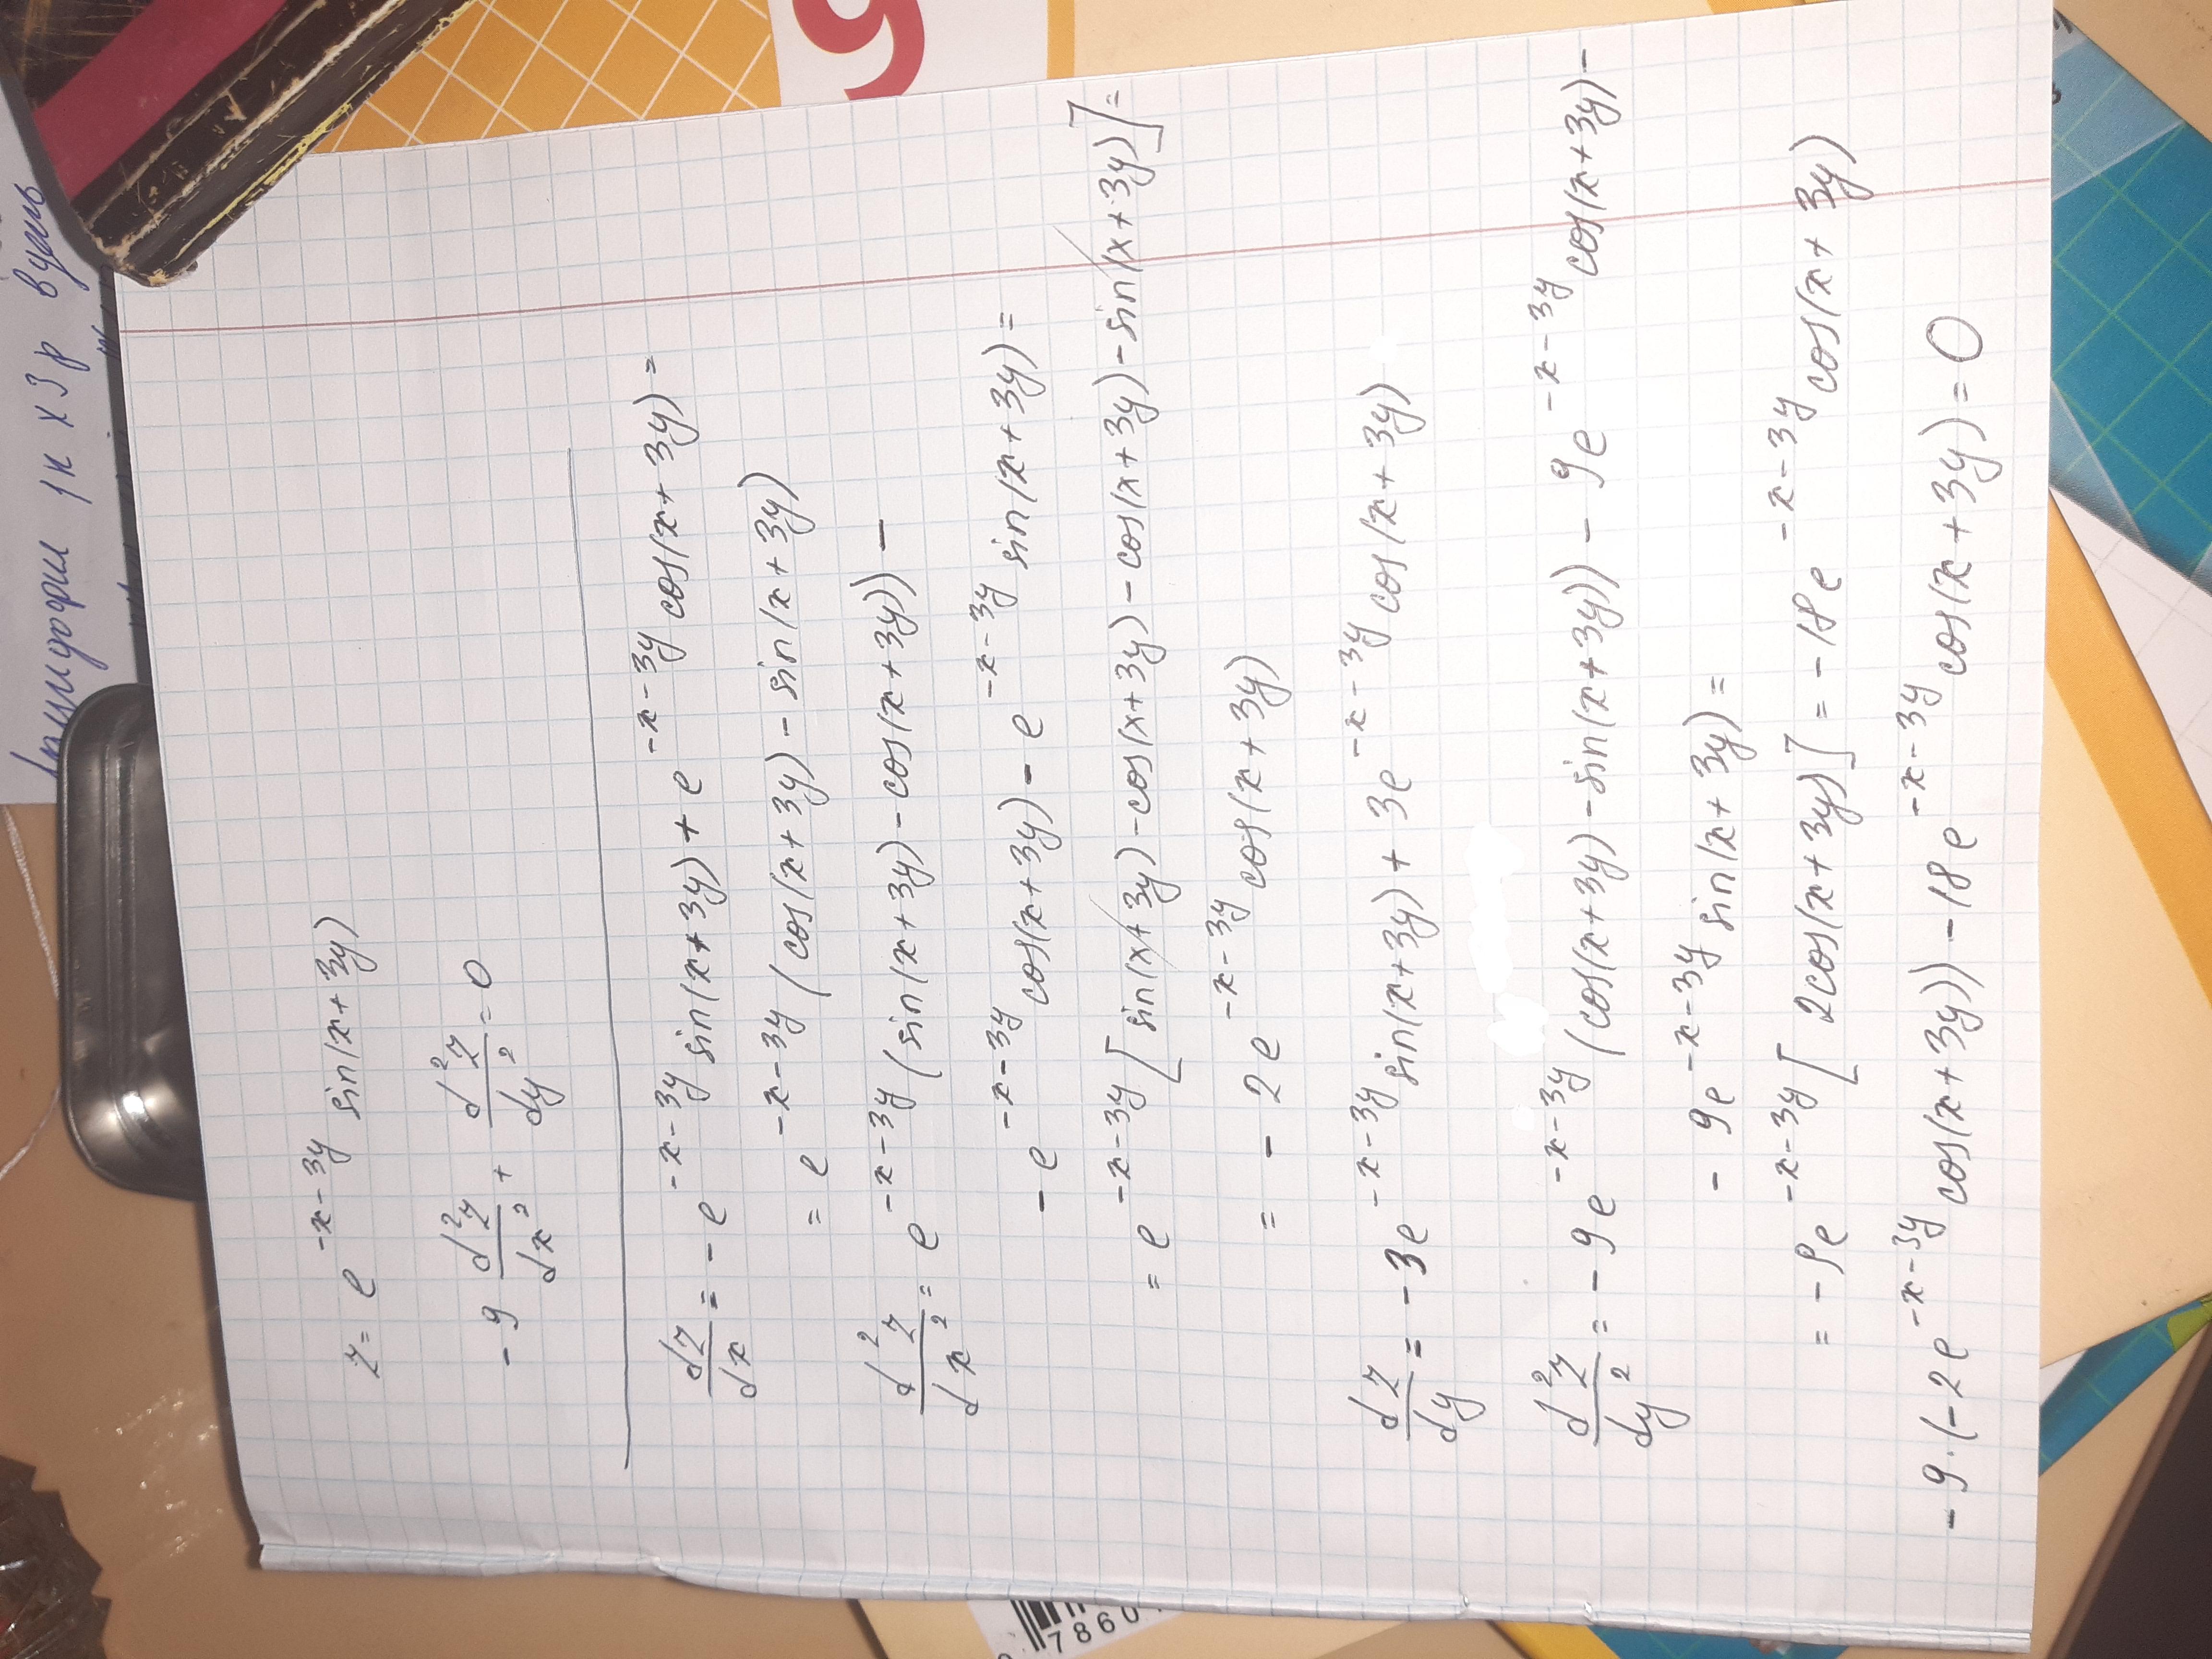 z = e^{-x-3y} sin(x+3y)
-9 d²z/dx² + d²z/dy² = 0
dz/dx = -e^{-x-3y} sin(x+3y) + e^{-x-3y} cos(x+3y) =
= e^{-x-3y} (cos(x+3y) - sin(x+3y)
d²z/dx² = e^{-x-3y} (sin(x+3y) - cos(x+3y)) -
- e^{-x-3y} cos(x+3y) - e^{-x-3y} sin(x+3y) =
= e^{-x-3y} [sin(x+3y) - cos(x+3y) - cos(x+3y) - sin(x+3y)] =
= -2e^{-x-3y} cos(x+3y)
dz/dy = -3e^{-x-3y} sin(x+3y) + 3e^{-x-3y} cos(x+3y)
d²z/dy² = -9e^{-x-3y} (cos(x+3y) - sin(x+3y)) - 9e^{-x-3y} cos(x+3y) -
- 9e^{-x-3y} sin(x+3y) =
= -9e^{-x-3y} [2cos(x+3y)] = -18e^{-x-3y} cos(x+3y)
-9·(-2e^{-x-3y} cos(x+3y)) - 18e^{-x-3y} cos(x+3y) = 0
1к х 3р
9
7860